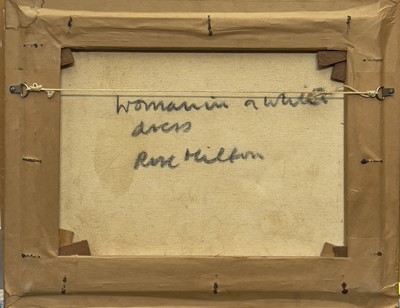 Woman in a white
dress
Rose Hilton